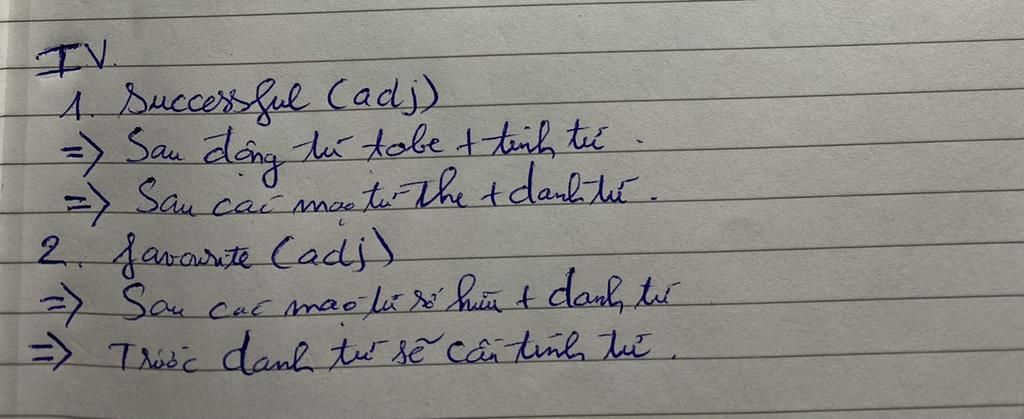 IV.
1. Successful (adj)
=> Sau động từ tobe + tính từ.
=> Sau các mạo từ The + danh từ.
2. favourite (adj)
=> Sau các mạo từ sở hữu + danh từ
=> Trước danh từ sẽ cần tính từ.